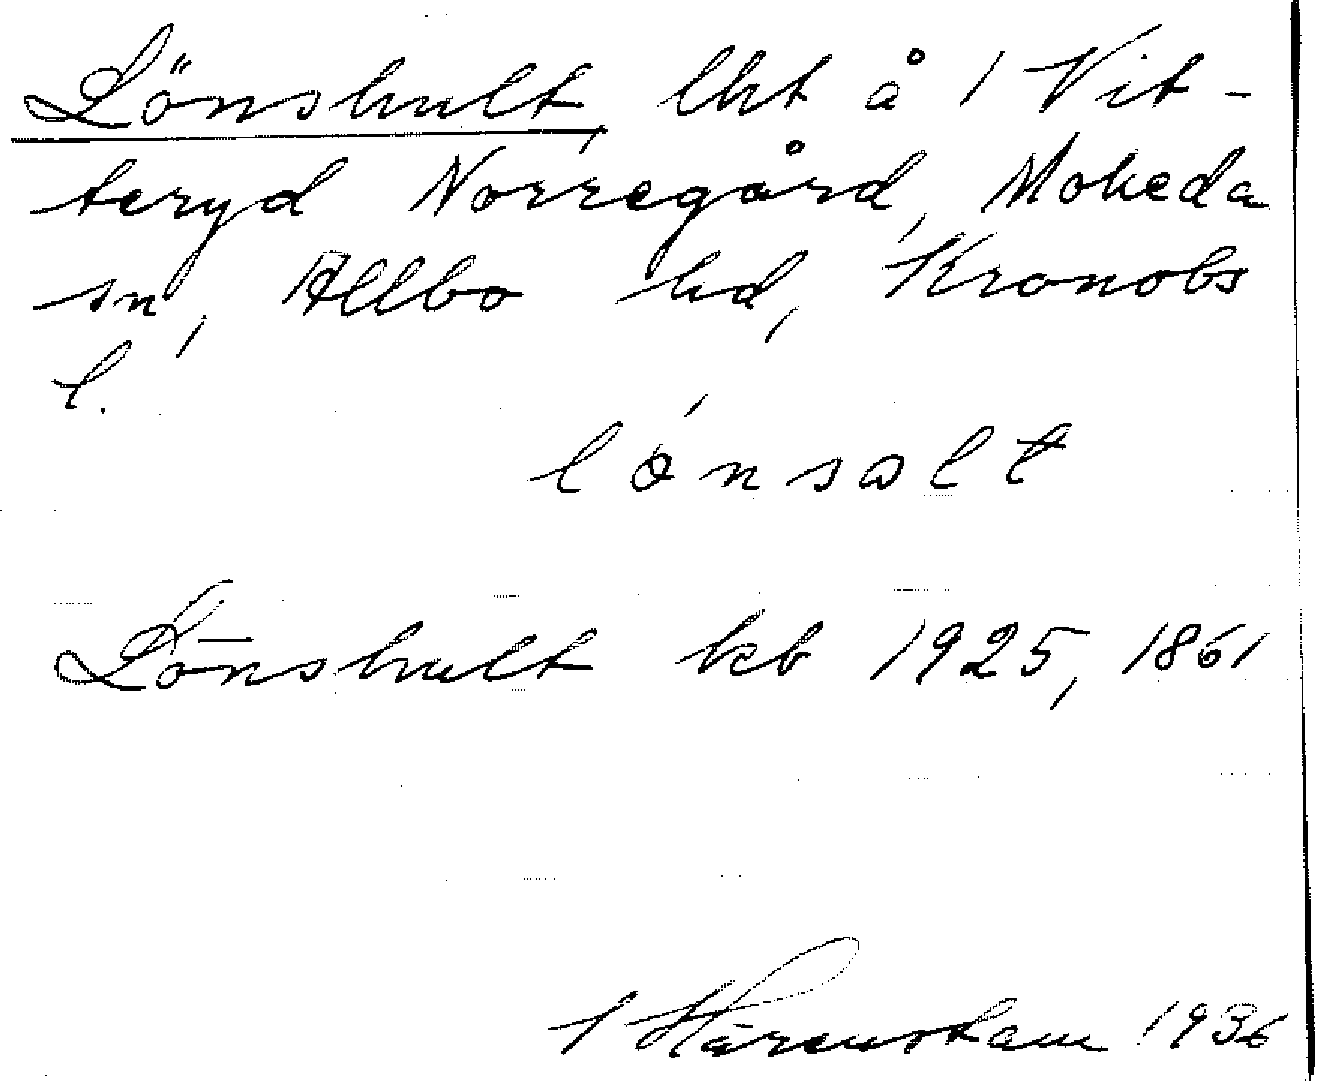 Lönshult, lht å 1 Vit-
teryd Norregård, Moheda
sn, Allbo hd, Kronobs
l.
lónsɷlt
Lönshult kb 1925, 1861
1936